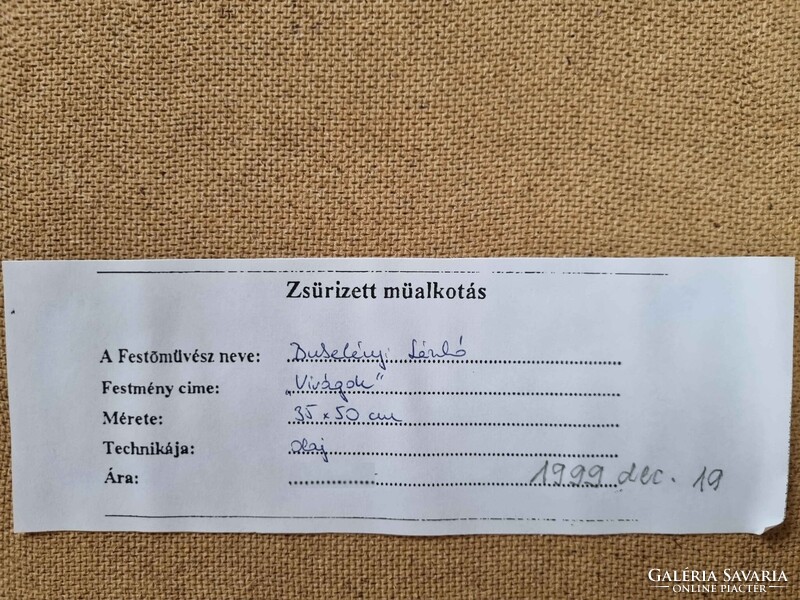 Zsürizett müalkotás
A Festõmûvész neve: Buselényi László
Festmény cime: „Virágok"
Mérete: 35 x 50 cm
Technikája: olaj
Ára: 1999 dec. 19
GALÉRIA SAVARIA
ONLINE PIACTÉR